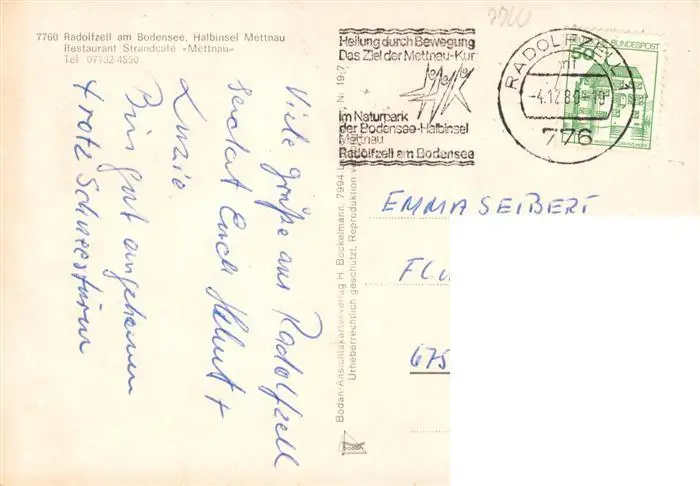 7760 Radolfzell am Bodensee, Halbinsel Mettnau
Restaurant Strandcafé »Mettnau«
Tel. 07732 4550
Viele Grüße aus Radolfzell
sendet Euch Helmut +
Luzie.
Bin gut angekommen
trotz Schneesturm
Bodan-Ansichtskartenverlag H. Bockelmann, 7994 L
Urheberrechtlich geschützt. Reproduktion v
Heilung durch Bewegung
Das Ziel der Mettnau-Kur
im Naturpark
der Bodensee-Halbinsel
Mettnau
Radolfzell am Bodensee
RADOLFZELL 1
-4.12.80-19
776
50
BUNDESPOST
EMMA SEIBERT
675